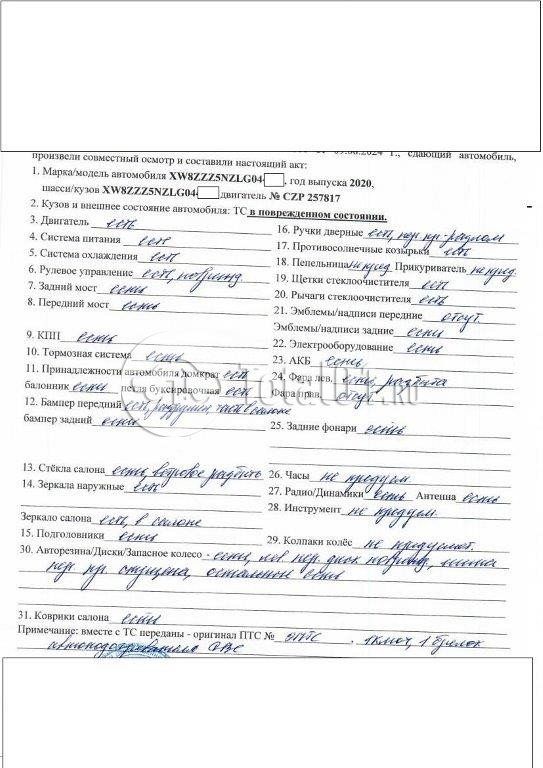 произвели совместный осмотр и составили настоящий акт:
1. Марка/модель автомобиля XW8ZZZ5NZLG04, год выпуска 2020,
шасси/кузов XW8ZZZ5NZLG04 двигатель № CZP 257817
2. Кузов и внешнее состояние автомобиля: ТС в поврежденном состоянии.
3. Двигатель есть
4. Система питания есть
5. Система охлаждения есть
6. Рулевое управление есть, поврежд.
7. Задний мост есть
8. Передний мост есть
9. КПП есть
10. Тормозная система есть
11. Принадлежности автомобиля домкрат есть
балонник есть петля буксировочная есть
12. Бампер передний есть, разрушен, части в салоне
бампер задний есть
13. Стёкла салона есть, ветровое разбито
14. Зеркала наружные есть
Зеркало салона есть, в салоне
15. Подголовники есть
16. Ручки дверные есть, пер. пр.
17. Противосолнечные козырьки есть
18. Пепельница не пред. Прикуриватель не пред.
19. Щетки стеклоочистителя есть
20. Рычаги стеклоочистителя есть
21. Эмблемы/надписи передние отсут.
Эмблемы/надписи задние есть
22. Электрооборудование есть
23. АКБ есть
24. Фара лев. есть, разбита
Фара прав. отсут.
25. Задние фонари есть
26. Часы не предусм
27. Радио/Динамики есть Антенна есть
28. Инструмент не предусм.
29. Колпаки колёс не предусмот.
30. Авторезина/Диски/Запасное колесо - есть, лев. пер. диск поврежд., шина
пер. пр. спущена, остальное есть
31. Коврики салона есть
Примечание: вместе с ТС переданы - оригинал ПТС № ЭПТС, 1 ключ, 1 брелок
TotalBit.ru